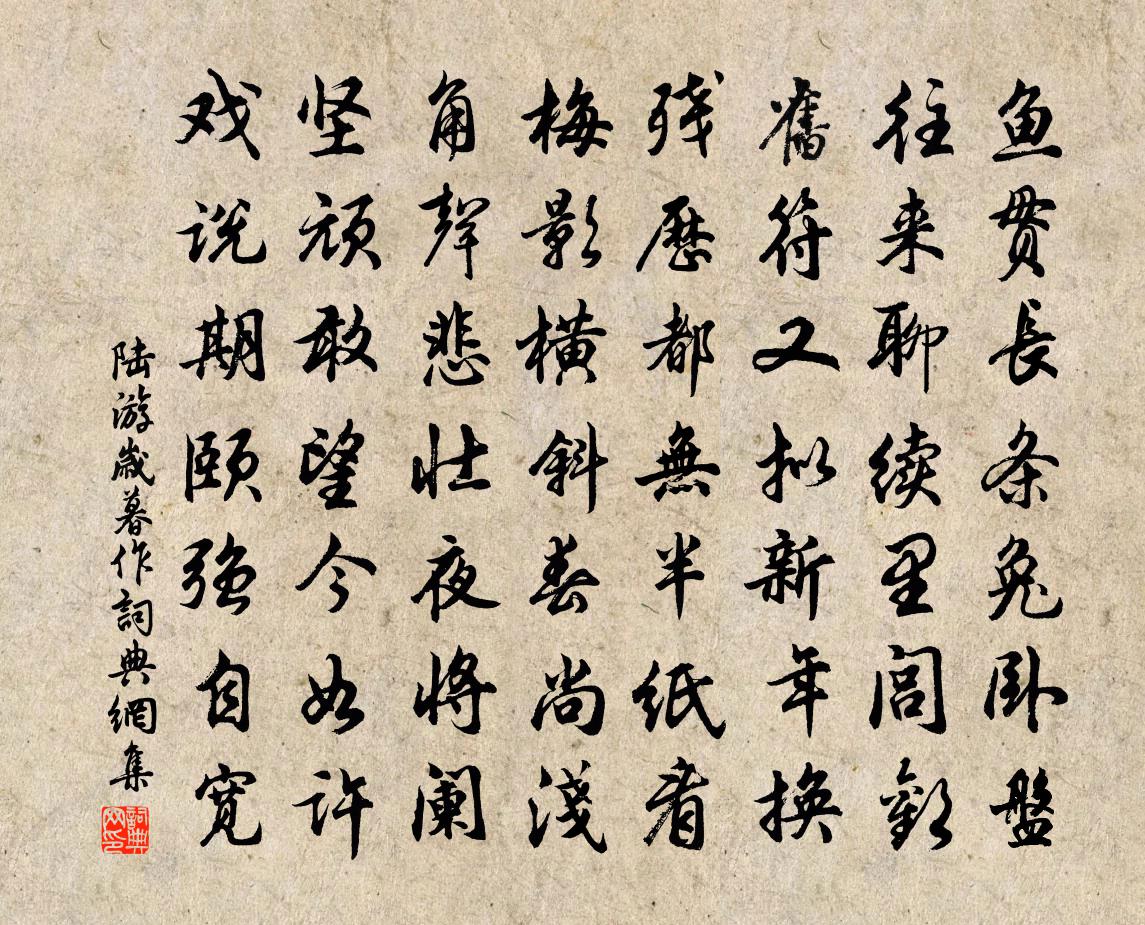 鱼贯长条兔卧盘
往来聊续里闾欢
旧符又拟新年换
残历都無半纸看
梅影横斜春尚浅
角声悲壮夜将阑
坚顽敢望今如许
戏说期颐强自宽
陆游歲暮作詞典網集
詞典
网印